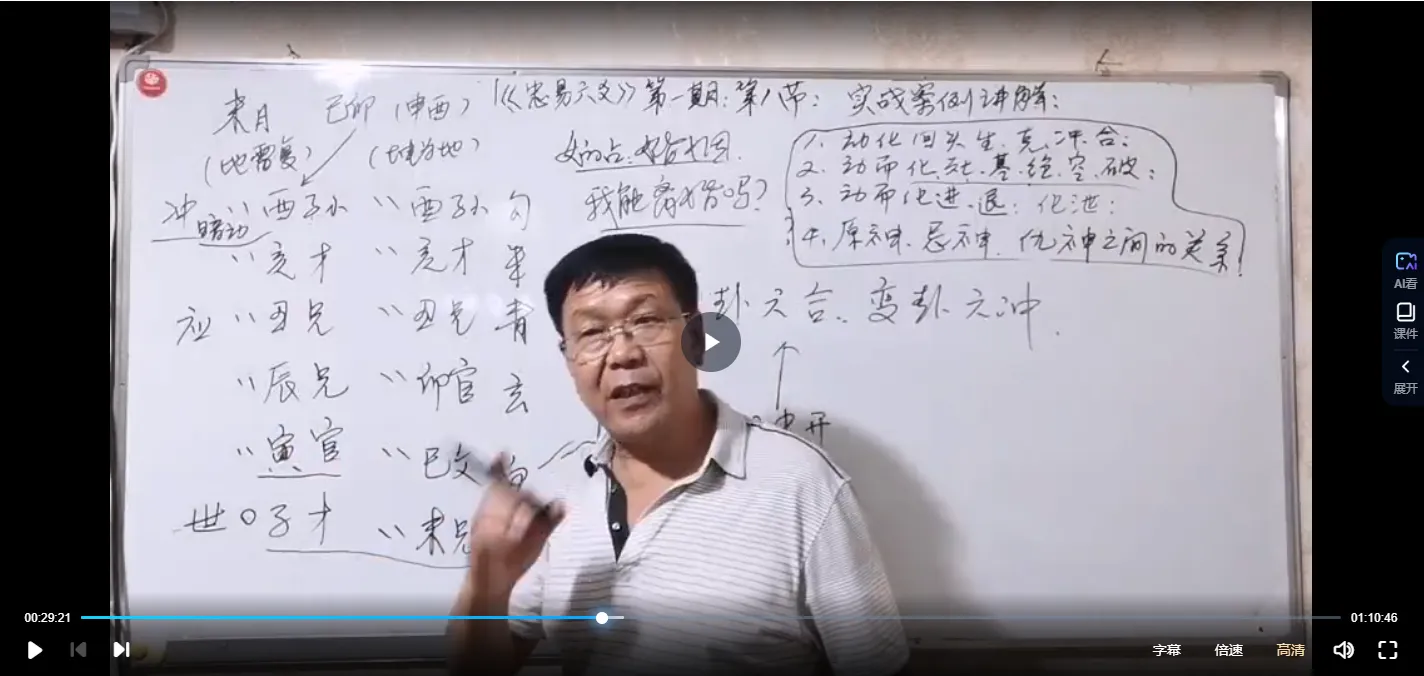 《忠易六爻》第一期:第八节: 实战案例讲解:
未月 己卯 (申酉)
(地雷复) (坤为地)
女的占:婚姻
我能离婚吗?
冲 〃 酉子孙 〃 酉子孙 勾
暗动
〃 亥才 〃 亥才 朱
应 〃 丑兄 〃 丑兄 青
〃 辰兄 〃 卯官 玄
〃 寅官 〃 巳父 白
世 〇 子才 〃 未兄
1、动化回头生、克、冲、合;
2、动而化
墓、绝、空、破;
3、动而化进、退; 化泄;
4、原神、忌神、仇神之间的关系!
卦六合、变卦六冲.
冲开
AI看
课件
展开
00:29:21
01:10:46
字幕 倍速 高清